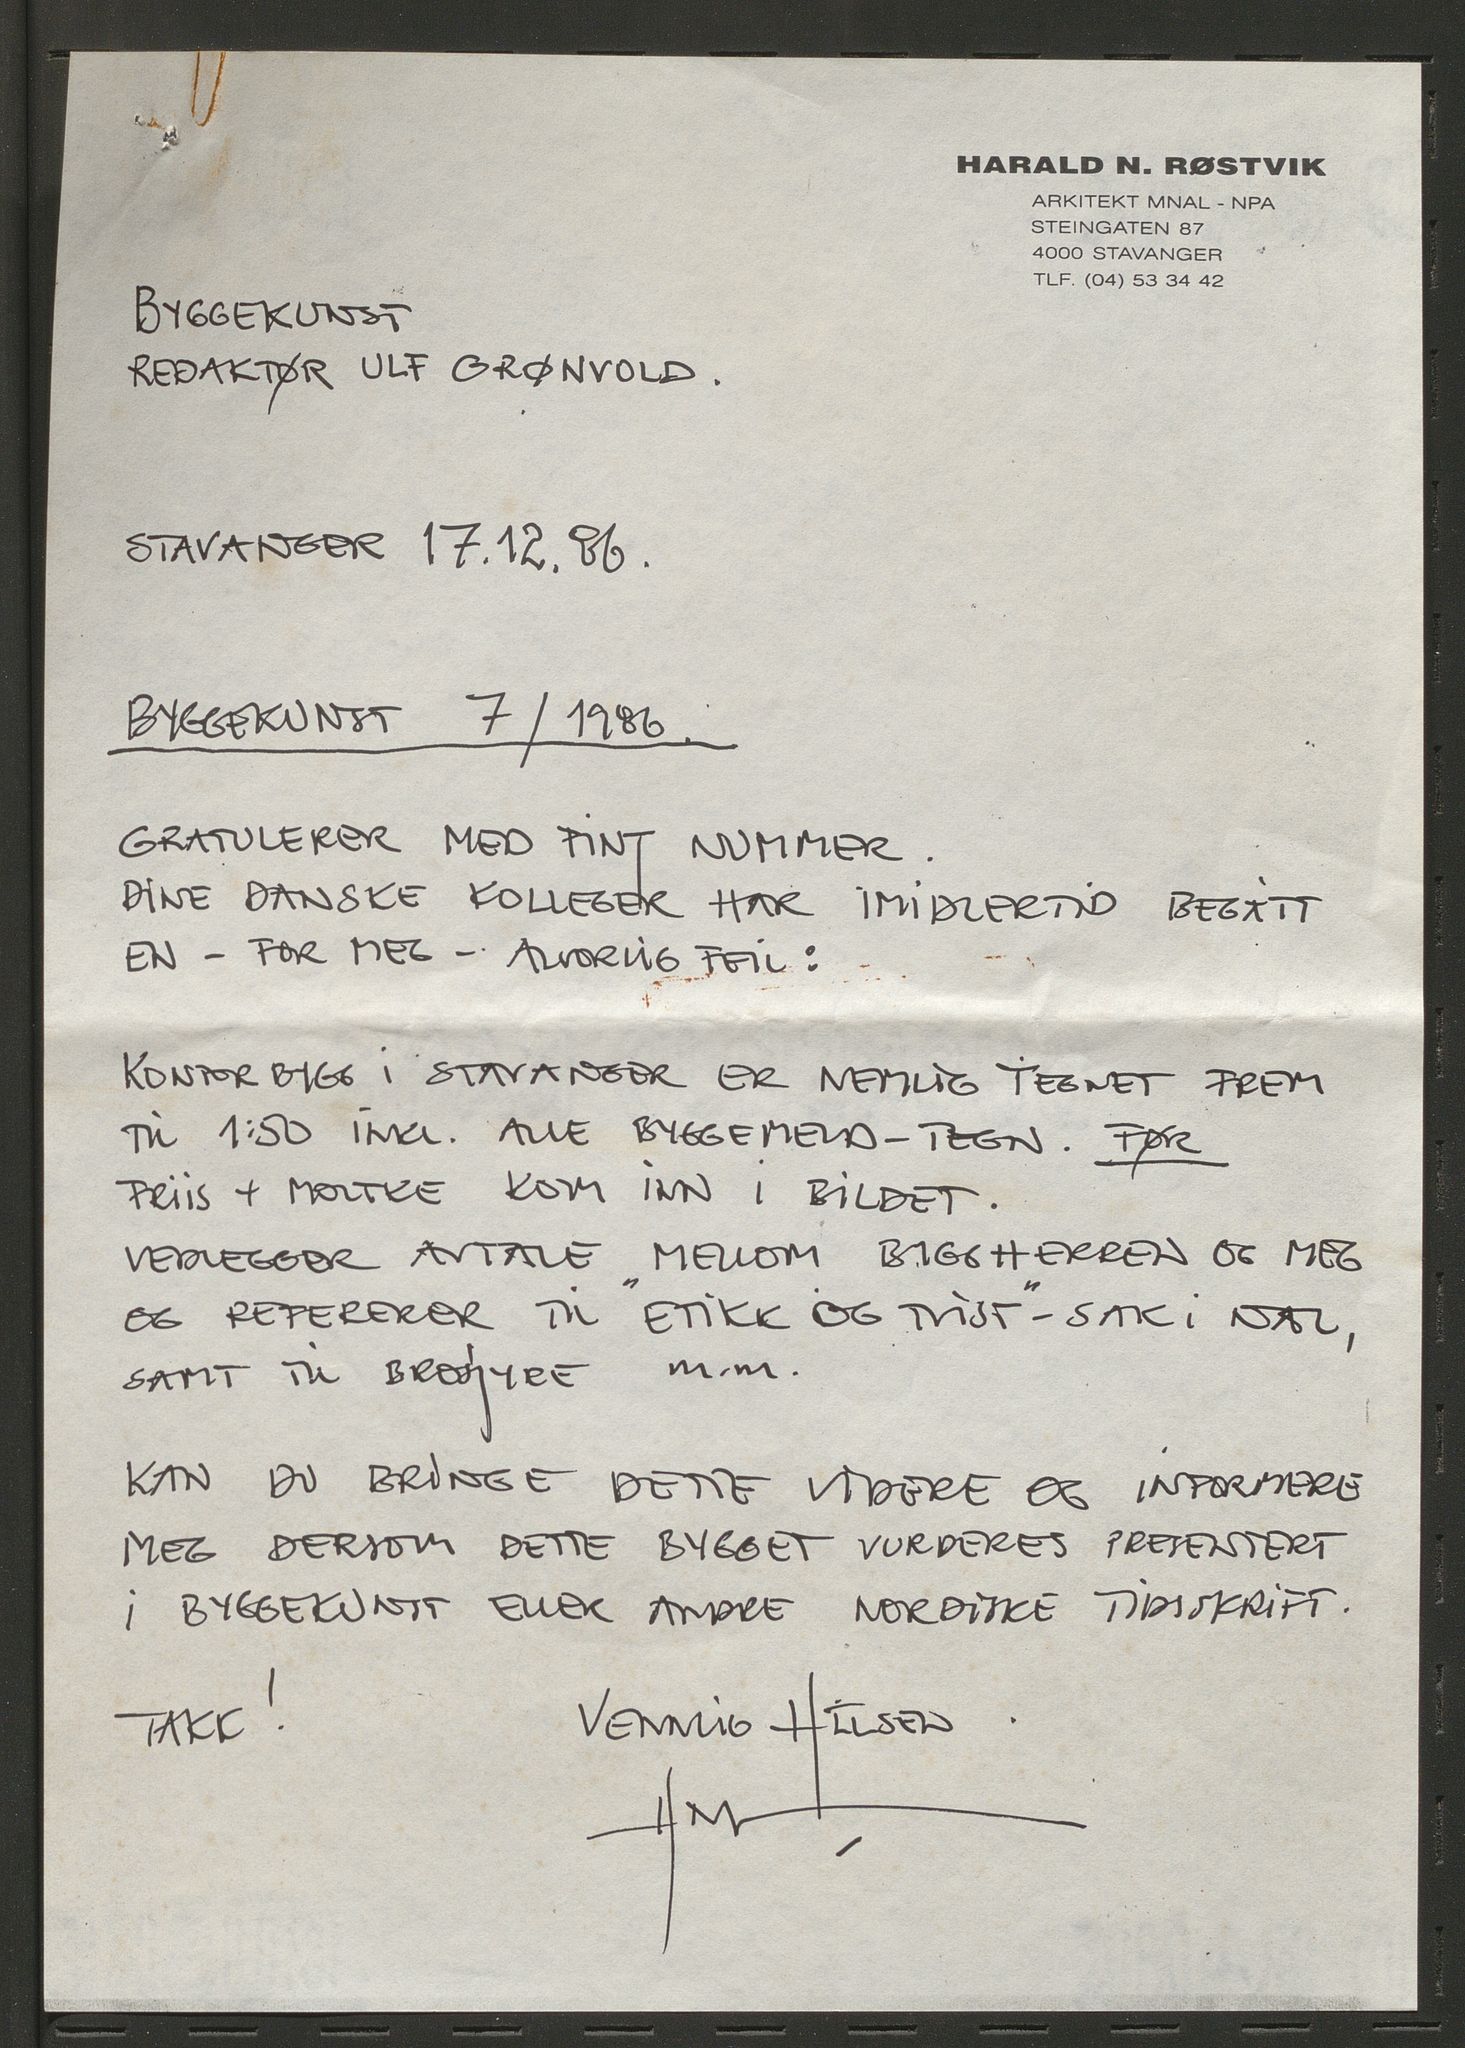 HARALD N. RØSTVIK
ARKITEKT MNAL - NPA
STEINGATEN 87
4000 STAVANGER
TLF. (04) 53 34 42
BYGGEKUNST
REDAKTØR ULF GRØNVOLD.
STAVANGER 17.12.86.
BYGGEKUNST 7/1986.
GRATULERER MED FINT NUMMER.
DINE DANSKE KOLLEGER HAR IMIDLERTID BEGÅTT
EN - FOR MEG - ALVORLIG FEIL:
KONTORBYGG I STAVANGER ER NEMLIG TEGNET FREM
TIL 1:50 INKL. ALLE BYGGEMELD-TEGN. FØR
FRIIS + MOLTKE KOM INN I BILDET.
VEDLEGGER AVTALE MELLOM BYGGHERREN OG MEG
OG REFERERER TIL "ETIKK OG TVIST"-SAK I NAL,
SAMT TIL BROSJYRE M.M.
KAN DU BRINGE DETTE VIDERE OG INFORMERE
MEG DERSOM DETTE BYGGET VURDERES PRESENTERT
I BYGGEKUNST ELLER ANDRE NORDISKE TIDSSKRIFT.
TAKK! VENNLIG HILSEN